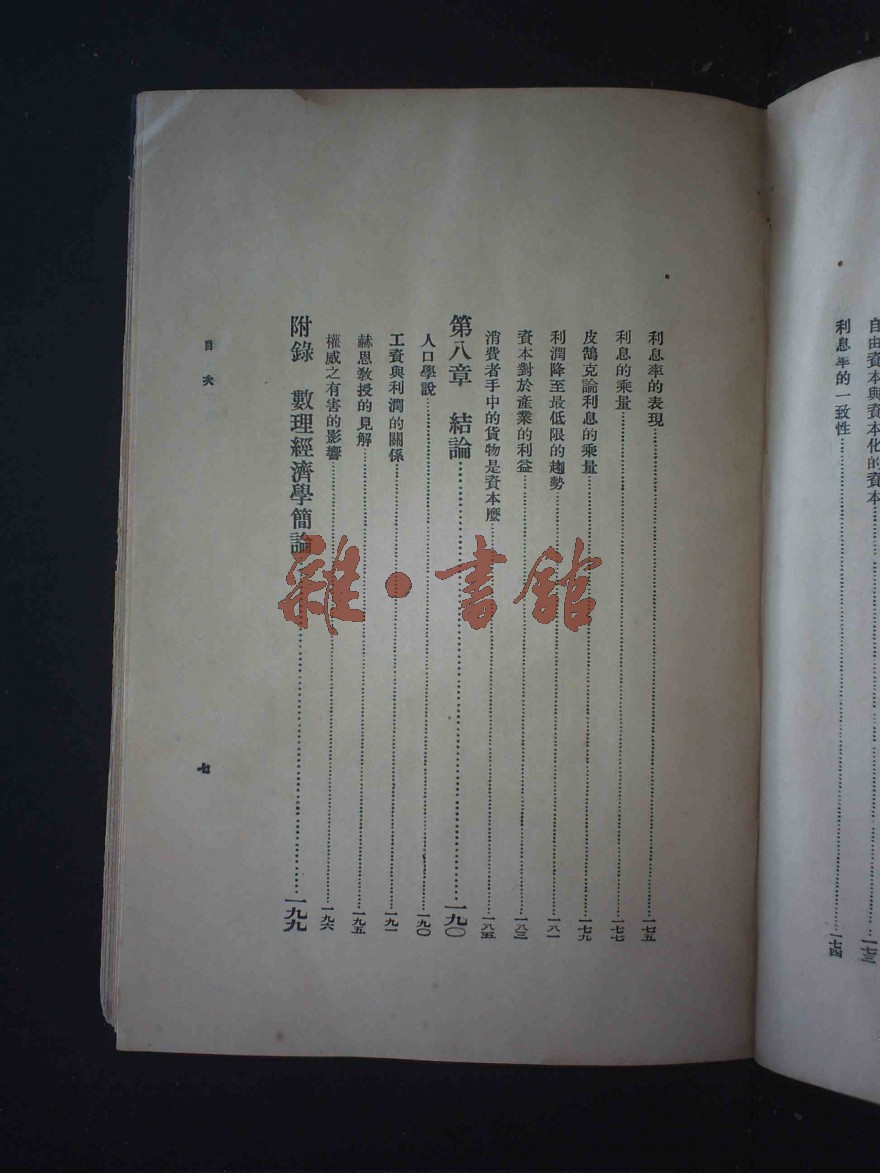 自由資本與資本化的資本……一七三
利息率的一致性……一七四
利息率的表現……一七五
利息的乘量……一七七
皮鵠克論利息的乘量……一七九
利潤降至最低限的趨勢……一八一
資本對於產業的利益……一八三
消費者手中的貨物是資本麼……一八五
第八章 結論……一九〇
人口學說……一九〇
工資與利潤的關係……一九一
赫恩教授的見解……一九五
權威之有害的影響……一九六
附錄 數理經濟學簡論……一九九
目次
七
雜·書館